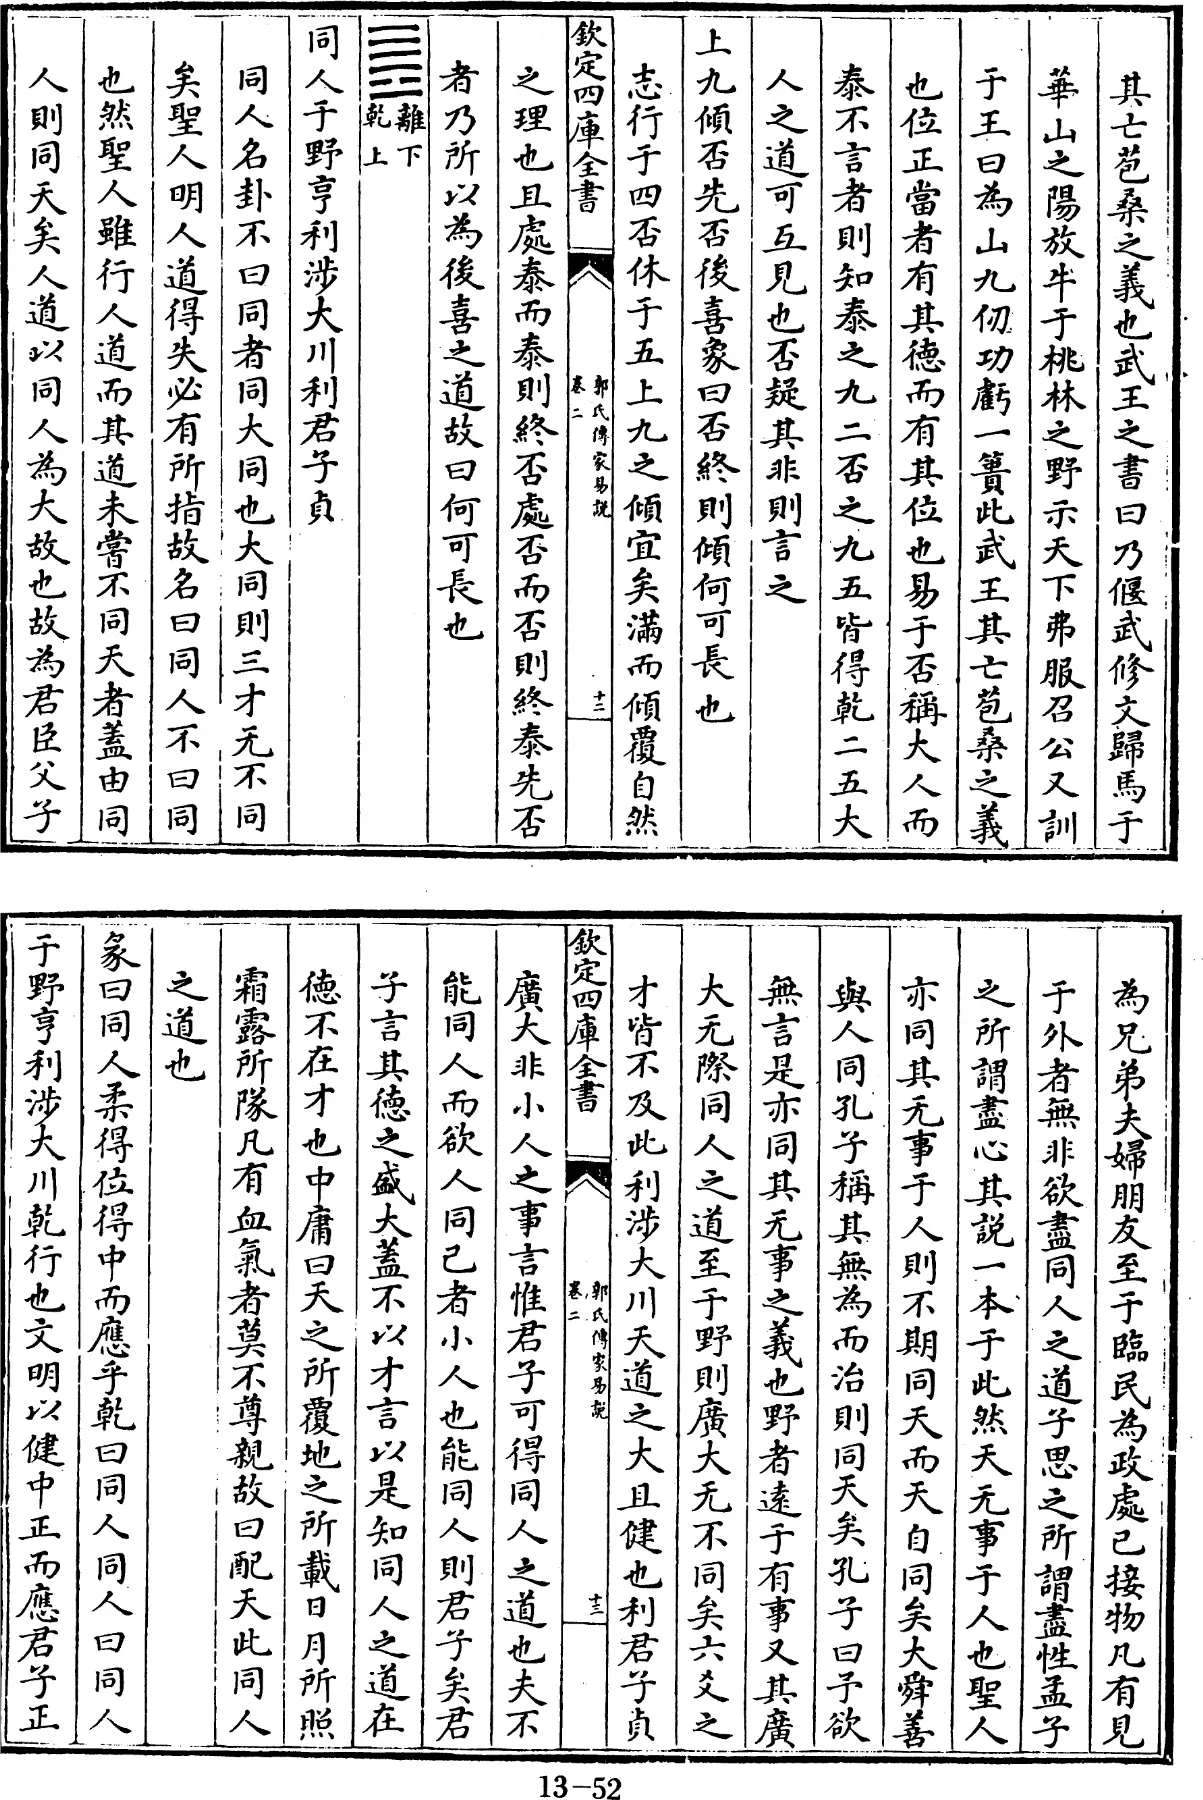 其亡苞桑之義也武王之書曰乃偃武修文歸馬于
華山之陽放牛于桃林之野示天下弗服召公又訓
于王曰為山九仞功虧一簣此武王其亡苞桑之義
也位正當者有其德而有其位也易于否稱大人而
泰不言者則知泰之九二否之九五皆得乾二五大
人之道可互見也否疑其非則言之
上九傾否先否後喜象曰否終則傾何可長也
志行于四否休于五上九之傾宜矣滿而傾覆自然
欽定四庫全書
郭氏傳家易說
卷二
十二
之理也且處泰而泰則終否處否而否則終泰先否
者乃所以為後喜之道故曰何可長也
離下
乾上
同人于野亨利涉大川利君子貞
同人名卦不曰同者同大同也大同則三才无不同
矣聖人明人道得失必有所指故名曰同人不曰同
也然聖人雖行人道而其道未嘗不同天者蓋由同
人則同天矣人道以同人為大故也故為君臣父子
為兄弟夫婦朋友至于臨民為政處己接物凡有見
于外者無非欲盡同人之道子思之所謂盡性孟子
之所謂盡心其説一本于此然天无事于人也聖人
亦同其无事于人則不期同天而天自同矣大舜善
與人同孔子稱其無為而治則同天矣孔子曰予欲
無言是亦同其无事之義也野者遠于有事又其廣
大无際同人之道至于野則廣大无不同矣六爻之
才皆不及此利涉大川天道之大且健也利君子貞
欽定四庫全書
郭氏傳家易說
卷二
十三
廣大非小人之事言惟君子可得同人之道也夫不
能同人而欲人同己者小人也能同人則君子矣君
子言其德之盛大蓋不以才言以是知同人之道在
德不在才也中庸曰天之所覆地之所載日月所照
霜露所隊凡有血氣者莫不尊親故曰配天此同人
之道也
彖曰同人柔得位得中而應乎乾曰同人同人曰同人
于野亨利涉大川乾行也文明以健中正而應君子正
13-52